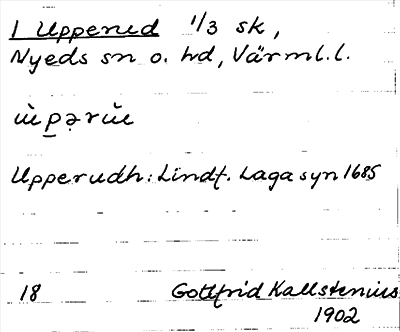 1 Upperud 1/3 sk,
Nyeds sn o. hd, Värml. l.
Upperudh: Lindf. Laga syn 1685
18 Gottfrid Kallstenius
1902